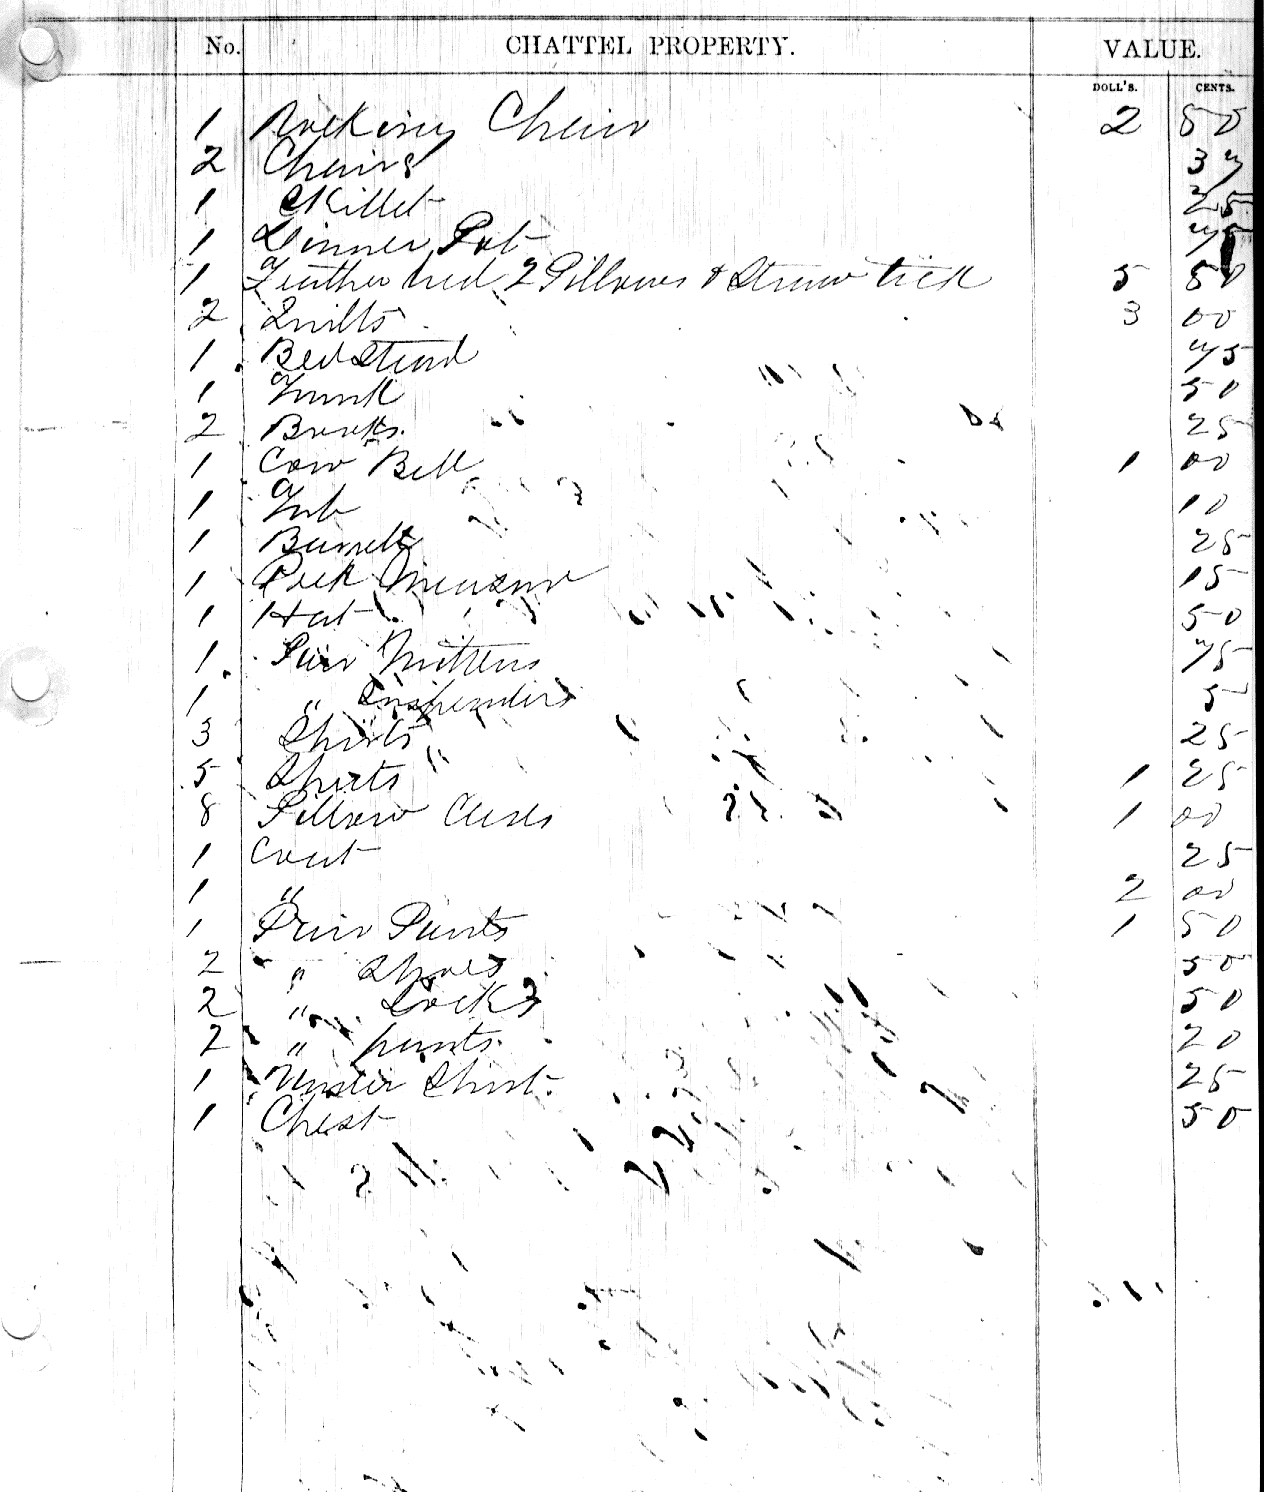 No. CHATTEL PROPERTY. VALUE.
DOLL'S. CENTS.
1 Rocking Chair 2 50
2 Chairs 37
1 Skillet 25
1 Dinner Pot 75
1 Feather bed 2 Pillows & Straw tick 5 50
2 Quilts 3 00
1 Bedstead 75
1 Trunk 50
2 Books. 25
1 Cow Bell 1 00
1 Tub 10
1 Barrell 25
1 Peck Measure 15
1 Hat 50
1 Pair Mittens 75
1 " Suspenders 5
3 Shirts 25
5 Sheets 1 25
8 Pillow Cases 1 00
1 Coat 25
1 " 2 00
1 Pair Pants 1 50
2 " Shoes 50
2 " Socks 50
2 " pants. 20
1 Under Shirt. 25
1 Chest 50